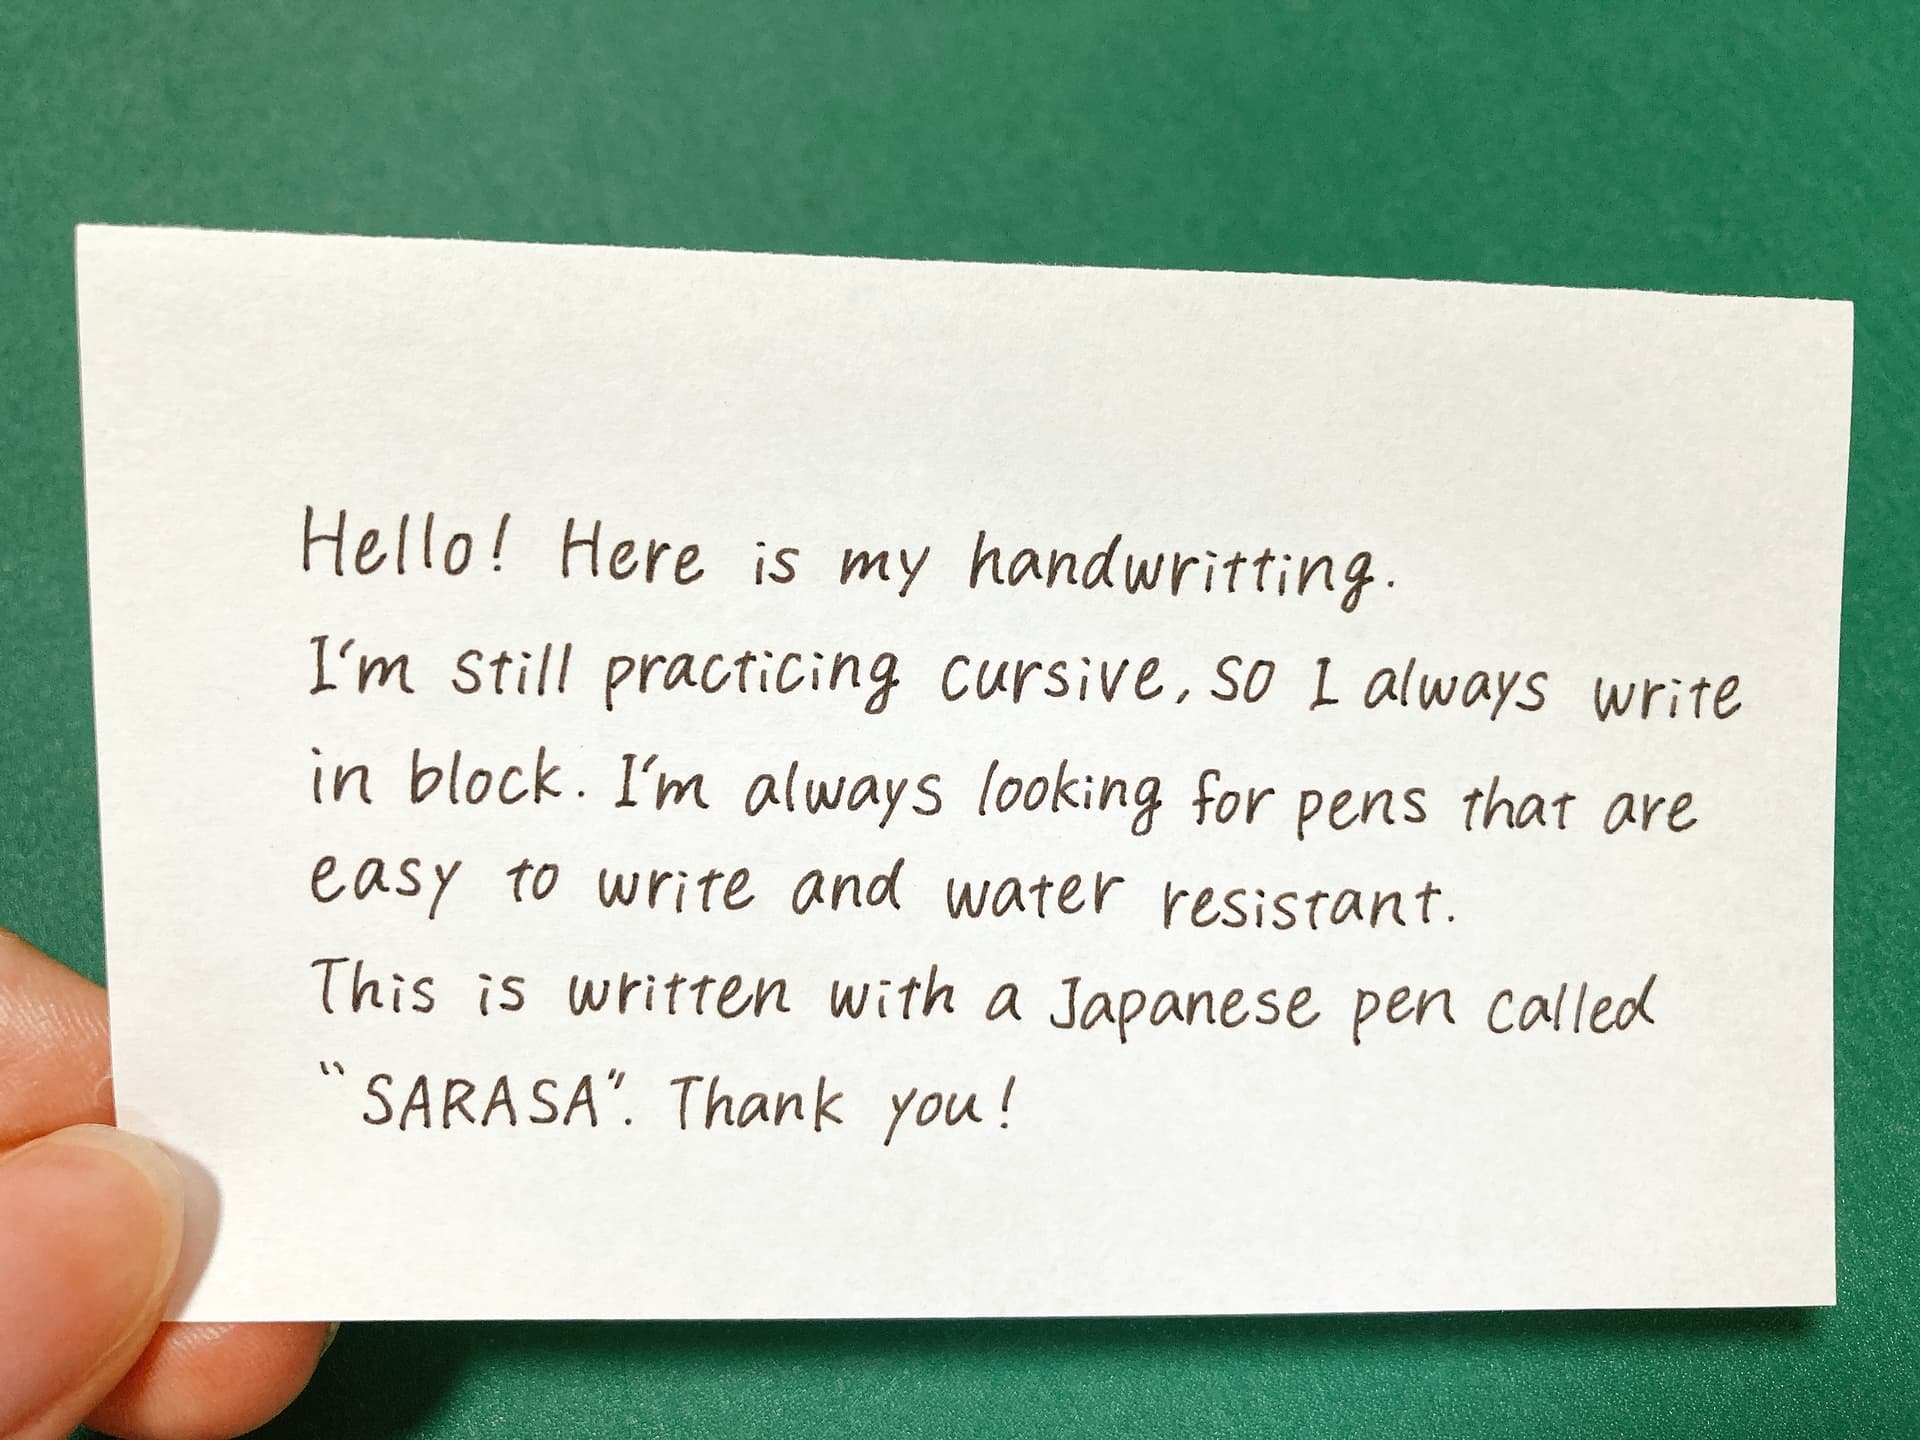 Hello! Here is my handwritting.
I'm still practicing cursive, so I always write
in block. I'm always looking for pens that are
easy to write and water resistant.
This is written with a Japanese pen called
"SARASA". Thank you!